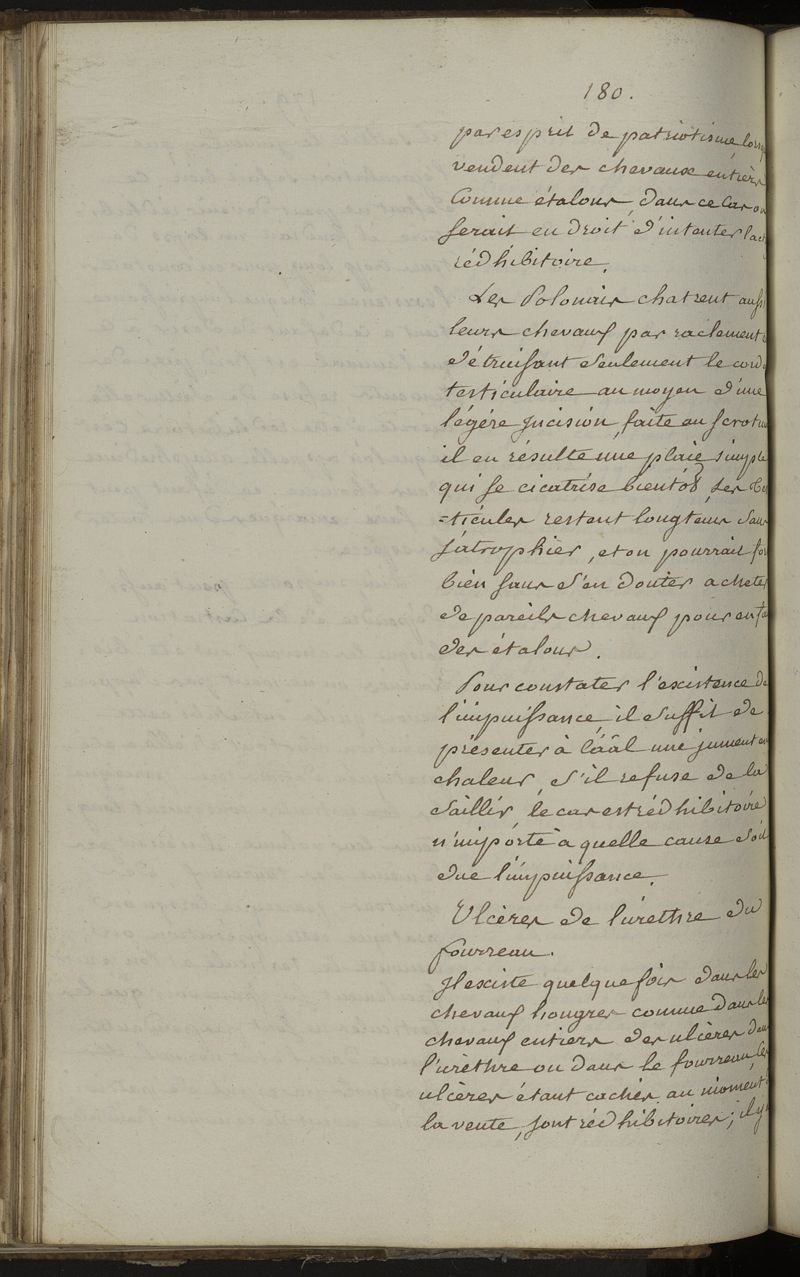 180.
par esprit de patriotisme lorsq
vendent des chevaux entiers
Comme étalons, dans ce Cas on
serait en droit d'intenter l'act
rédhibitoire.
Les Polonais chatrent auss
leurs chevaux par raclement
détruisant seulement le cord
testiculaire au moyen d'une
légére Jncision, faite au scrotum
il en résulte une plaie simple
qui se cicatrise bientôt, les te
=ticules restent longtems sans
s'atrophier, et on pourrait for
bien sans s'en douter acheter
de pareils chevaux pour en fa
des étalons.
Pour constater l'existence de
l'impuissance, il suffit de
présenter à l'áâl une jument en
chaleur, s'il refuse de la
saillir, le cas est rédhibitoire
n'importe à quelle cause soit
due l'impuissance.
Ulcères de l'urethre du
fourreau.
Jl existe quelque fois dans les
chevaux hongres comme dans les
chevaux entiers des ulcères dans
l'urèthre ou dans le fourreau, Ces
ulcères étant cachés au moment
la vente, sont rédhibitoires; il y